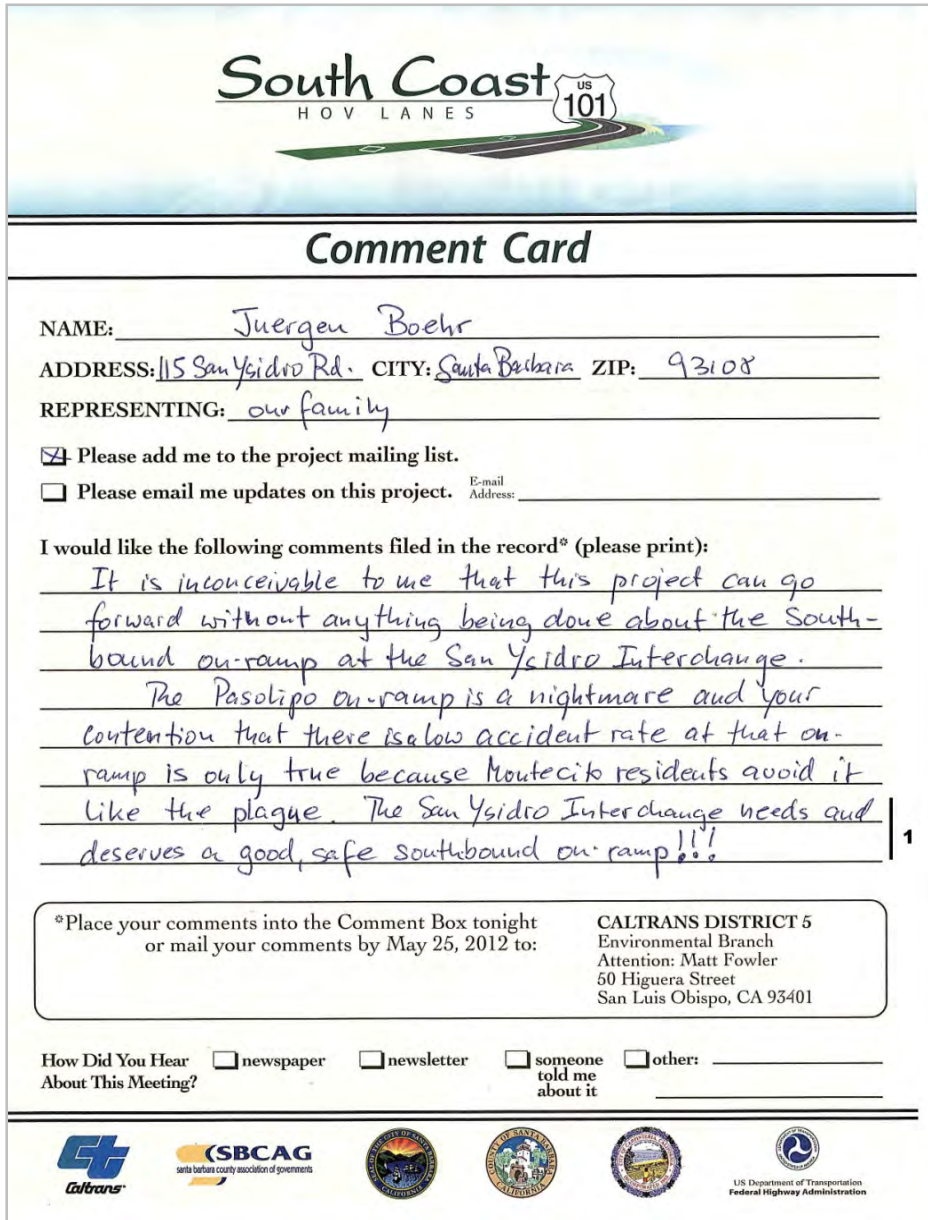 South Coast
HOV LANES
US
101
Comment Card
NAME: Juergen Boehr
ADDRESS: 115 San Ysidro Rd. CITY: Santa Barbara ZIP: 93108
REPRESENTING: our family
Please add me to the project mailing list.
Please email me updates on this project. E-mail Address:
I would like the following comments filed in the record* (please print):
It is inconceivable to me that this project can go
forward without anything being done about the South-
bound on-ramp at the San Ysidro Interchange.
The Pasolipo on-ramp is a nightmare and your
contention that there is a low accident rate at that on-
ramp is only true because Montecito residents avoid it
like the plague. The San Ysidro Interchange needs and
deserves a good, safe southbound on-ramp!!!
1
*Place your comments into the Comment Box tonight
or mail your comments by May 25, 2012 to:
CALTRANS DISTRICT 5
Environmental Branch
Attention: Matt Fowler
50 Higuera Street
San Luis Obispo, CA 93401
How Did You Hear
About This Meeting?
newspaper
newsletter
someone
told me
about it
other:
Caltrans
SBCAG
santa barbara county association of governments
COUNTY OF SANTA BARBARA
CALIFORNIA
US Department of Transportation
Federal Highway Administration